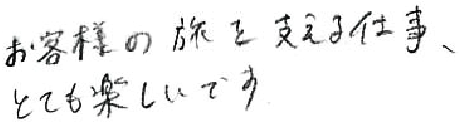 お客様の旅を支える仕事、
とても楽しいです